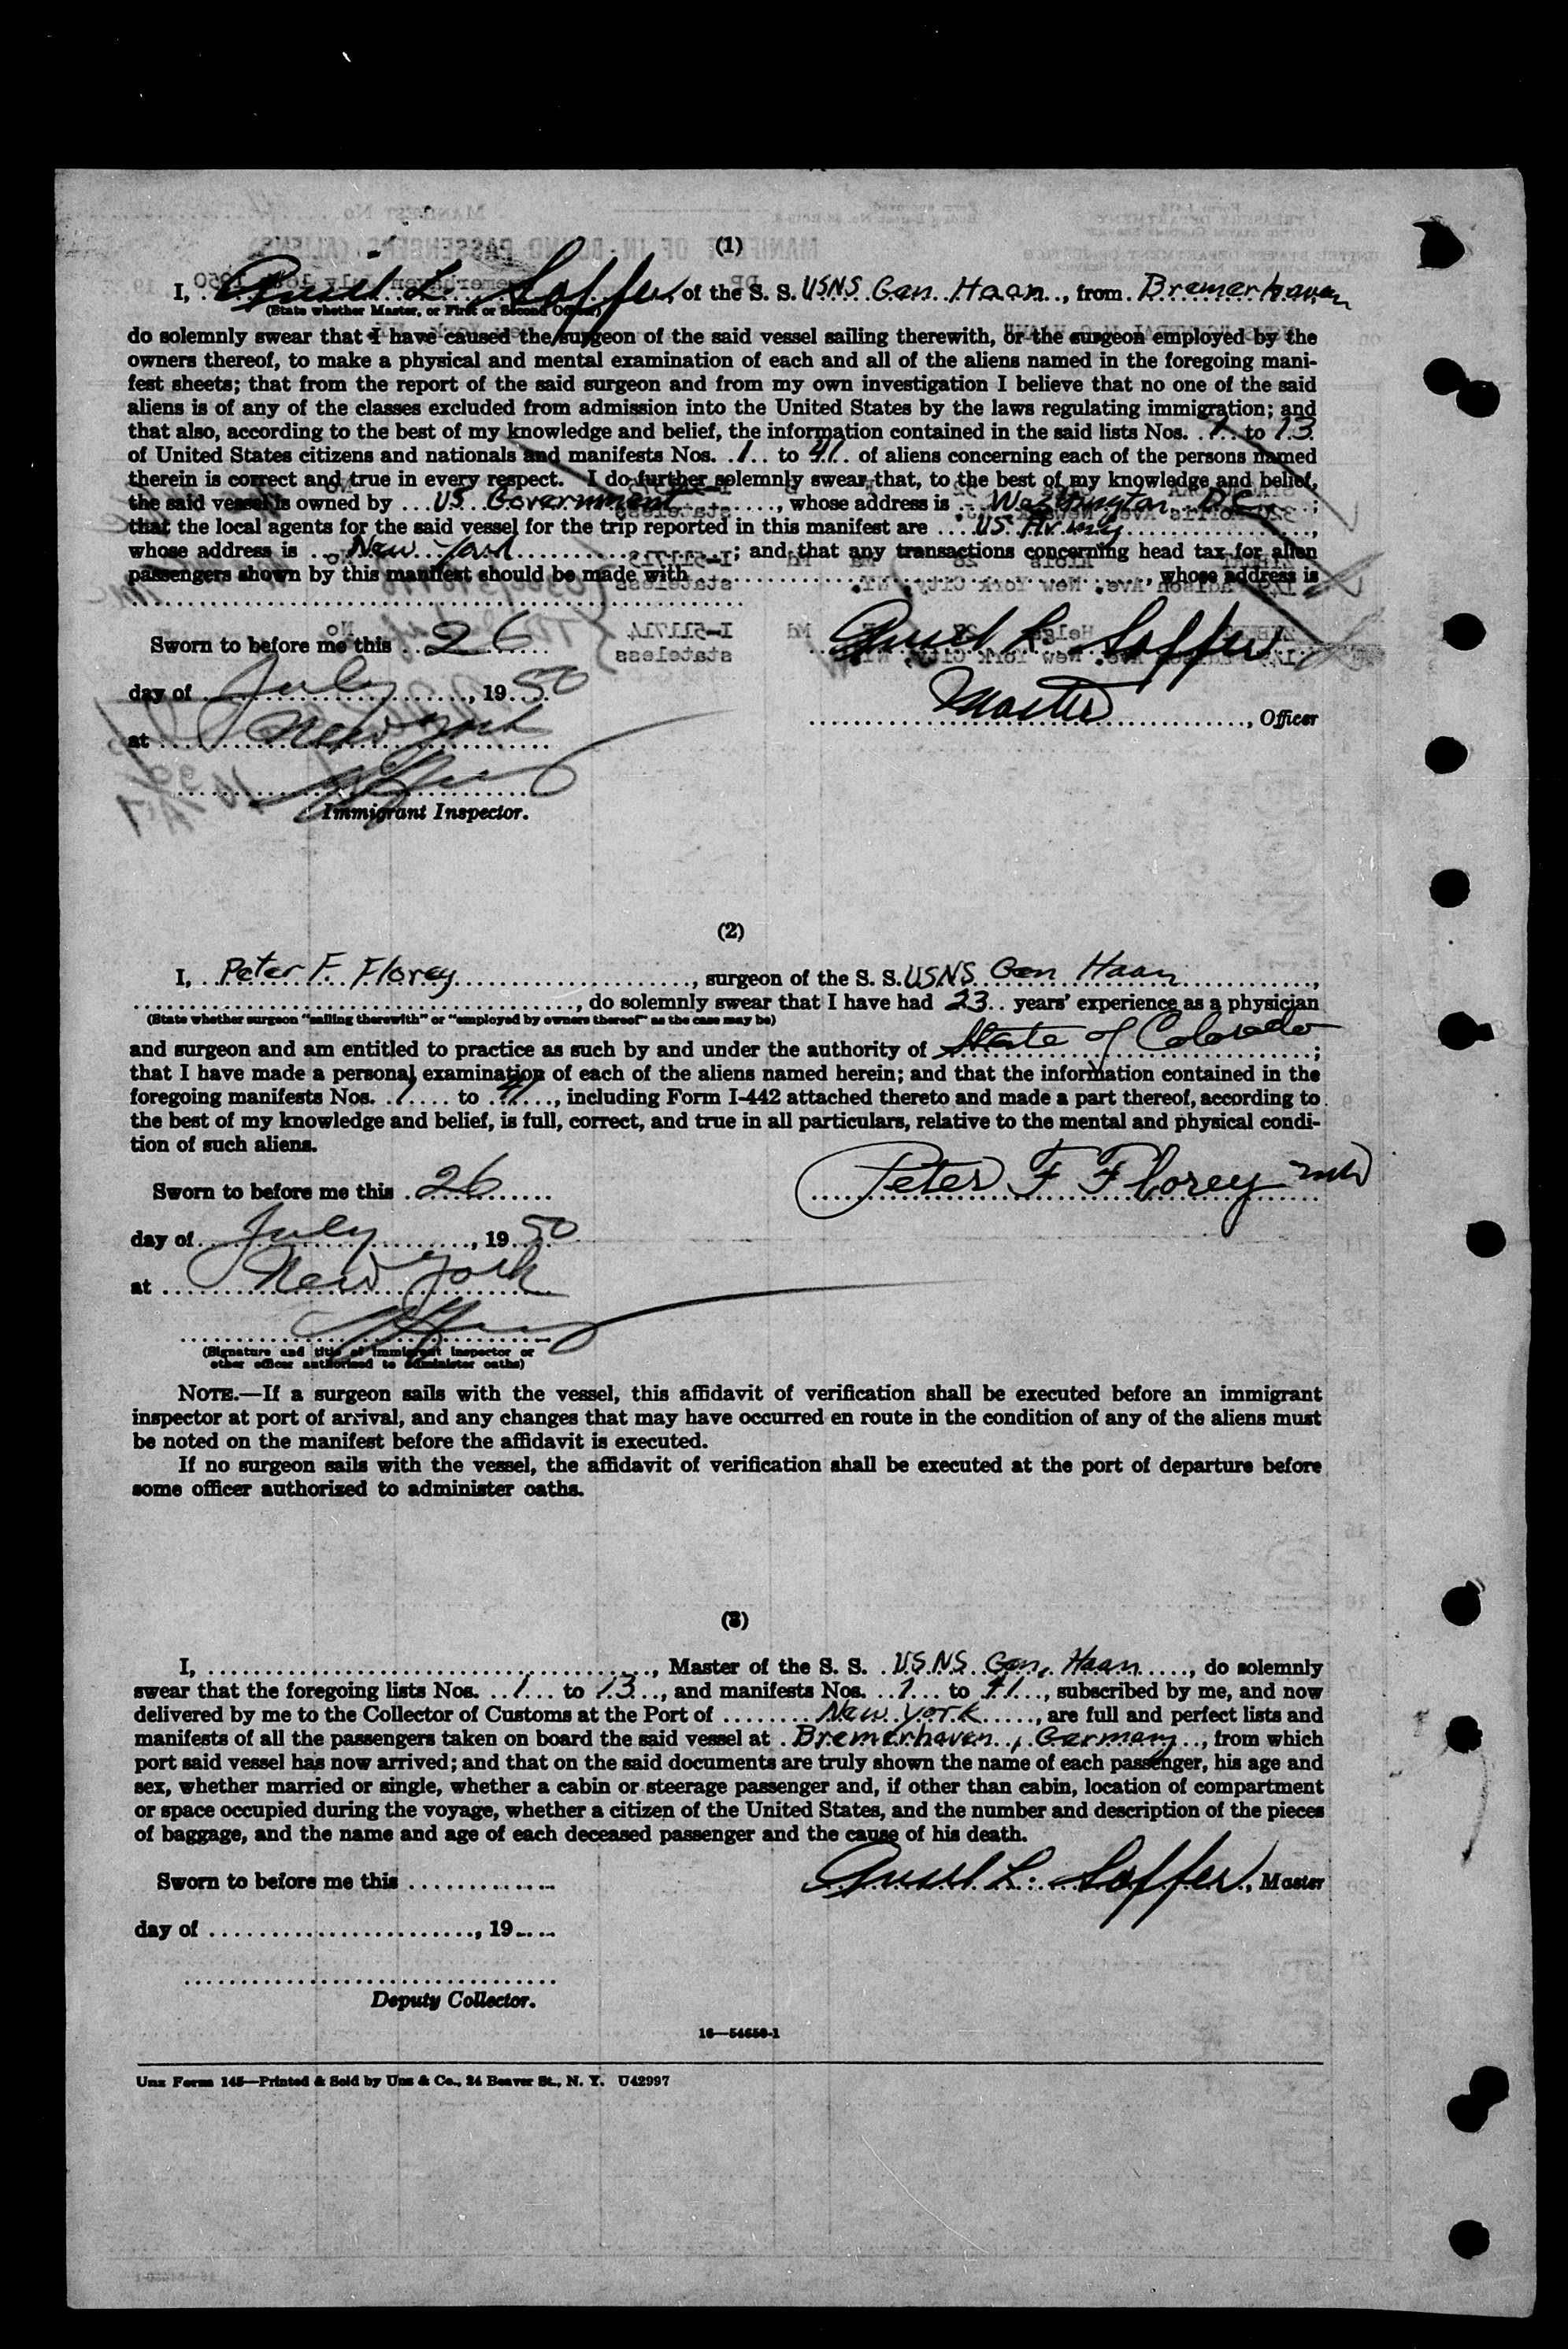 (1)
I, L. Saffer, of the S. S. USNS Gen Haan, from Bremerhaven
(State whether Master, or First or Second Officer)
do solemnly swear that I have caused the surgeon of the said vessel sailing therewith, or the surgeon employed by the
owners thereof, to make a physical and mental examination of each and all of the aliens named in the foregoing mani-
fest sheets; that from the report of the said surgeon and from my own investigation I believe that no one of the said
aliens is of any of the classes excluded from admission into the United States by the laws regulating immigration; and
that also, according to the best of my knowledge and belief, the information contained in the said lists Nos. 1 to 13
of United States citizens and nationals and manifests Nos. 1 to 41 of aliens concerning each of the persons named
therein is correct and true in every respect. I do further solemnly swear that, to the best of my knowledge and belief,
the said vessel is owned by US Government, whose address is Washington D.C.;
that the local agents for the said vessel for the trip reported in this manifest are US Army,
whose address is New York; and that any transactions concerning head tax for alien
passengers shown by this manifest should be made with, whose address is
Sworn to before me this 26
L. Saffer
day of July, 1950
Master, Officer
at New York
Immigrant Inspector.
(2)
I, Peter F. Florey, surgeon of the S. S. USNS Gen Haan,
, do solemnly swear that I have had 23 years' experience as a physician
(State whether surgeon "sailing therewith" or "employed by owners thereof" as the case may be)
and surgeon and am entitled to practice as such by and under the authority of State of Colorado;
that I have made a personal examination of each of the aliens named herein; and that the information contained in the
foregoing manifests Nos. 1 to 41, including Form I-442 attached thereto and made a part thereof, according to
the best of my knowledge and belief, is full, correct, and true in all particulars, relative to the mental and physical condi-
tion of such aliens.
Peter F Florey MD
Sworn to before me this 26
day of July, 1950
at New York
(Signature and title of immigrant inspector or
other officer authorized to administer oaths)
NOTE.—If a surgeon sails with the vessel, this affidavit of verification shall be executed before an immigrant
inspector at port of arrival, and any changes that may have occurred en route in the condition of any of the aliens must
be noted on the manifest before the affidavit is executed.
If no surgeon sails with the vessel, the affidavit of verification shall be executed at the port of departure before
some officer authorized to administer oaths.
(3)
I, , Master of the S. S. USNS Gen. Haan, do solemnly
swear that the foregoing lists Nos. 1 to 13, and manifests Nos. 1 to 41, subscribed by me, and now
delivered by me to the Collector of Customs at the Port of New York, are full and perfect lists and
manifests of all the passengers taken on board the said vessel at Bremerhaven, Germany, from which
port said vessel has now arrived; and that on the said documents are truly shown the name of each passenger, his age and
sex, whether married or single, whether a cabin or steerage passenger and, if other than cabin, location of compartment
or space occupied during the voyage, whether a citizen of the United States, and the number and description of the pieces
of baggage, and the name and age of each deceased passenger and the cause of his death.
L. Saffer, Master
Sworn to before me this
day of , 19
Deputy Collector.
16—54650-1
Unz Form 145—Printed & Sold by Unz & Co., 24 Beaver St., N. Y. U42997